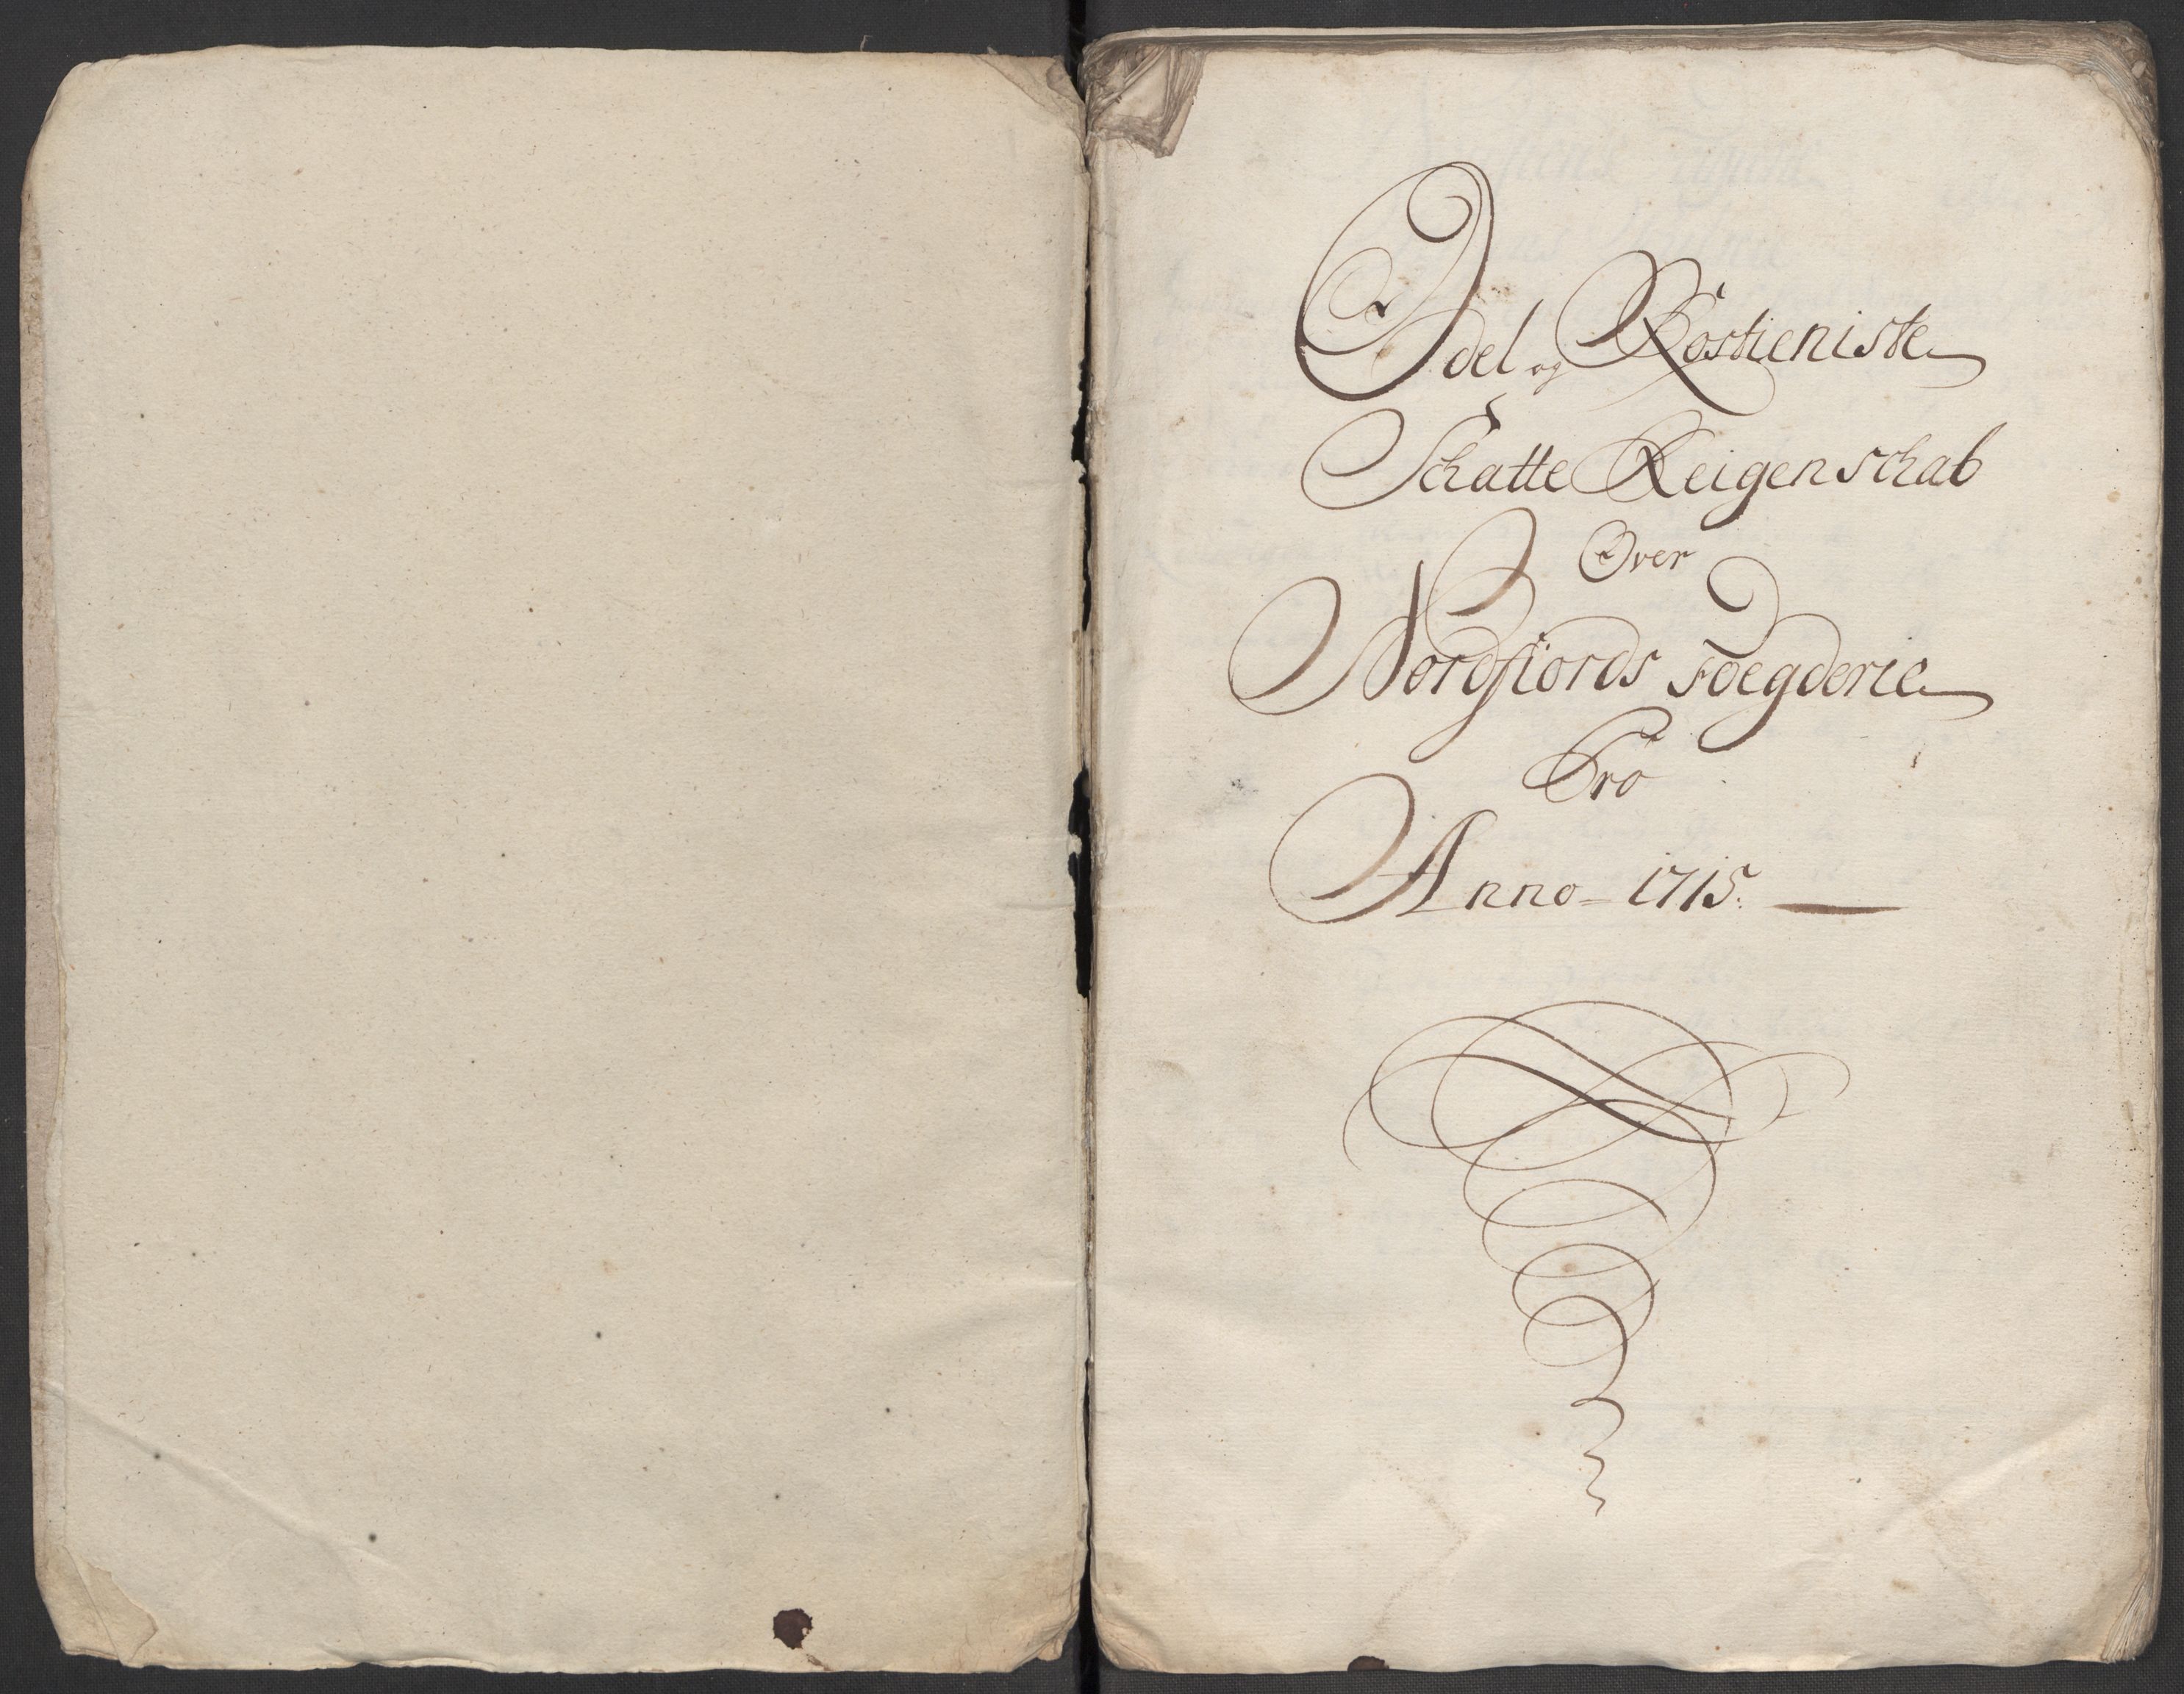 Odel og Rostieniste
Schatte Reigenschab
Over
Nordfiords Foegderie
Pro
Anno - 1715.